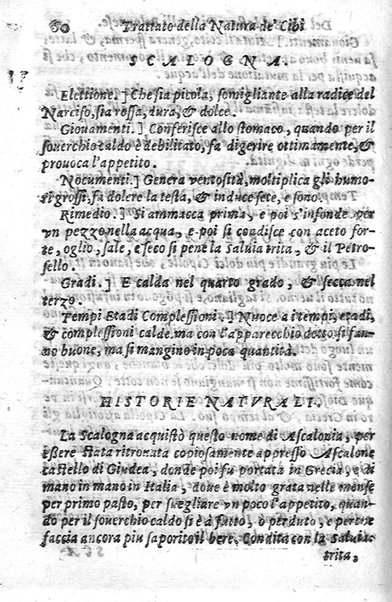 60 Trattato della Natura de' Cibi
SCALOGNA.
Elettione.] Che sia picola, somigliante alla radice del
Narciso, sia rossa, dura, & dolce.
Giovamenti.] Conferisce allo stomaco, quando per il
souerchio caldo è debilitato, fa digerire ottimamente, &
prouoca l'appetito.
Nocumenti.] Genera ventosità, moltiplica gli humo-
ri grossi, fa dolere la testa, & induce sete, e sono.
Rimedio.] Si ammacca prima, e poi s'infonde per
vn pezzo nella acqua, e poi si condisce con aceto for-
te, oglio, sale, e seco si pene la Saluia trita, & il Petro-
sello.
Gradi.] E calda nel quarto grado, & secca nel
terzo.
Tempi Etadi Complessioni.] Nuoce a i tempi, etadi,
& complessioni calde, ma con l'apparecchio detto si fan-
no buone, ma si mangino in poca quantità.
HISTORIE NATVRALI.
La Scalogna acquistò questo nome di Ascalonia, per
eßere stata ritrouata copiosamente appresso Ascalone
castello di Giudea, donde poi fu portata in Grecia, e di
mano in mano in Italia, doue è molto grata nelle mense
per primo pasto, per suegliare vn poco l'appetito, quan-
do per il souerchio caldo si è à fatto, ò perduto, e perche
faccia ancora piu saporito il bere. Condita con la Saluia
trita,